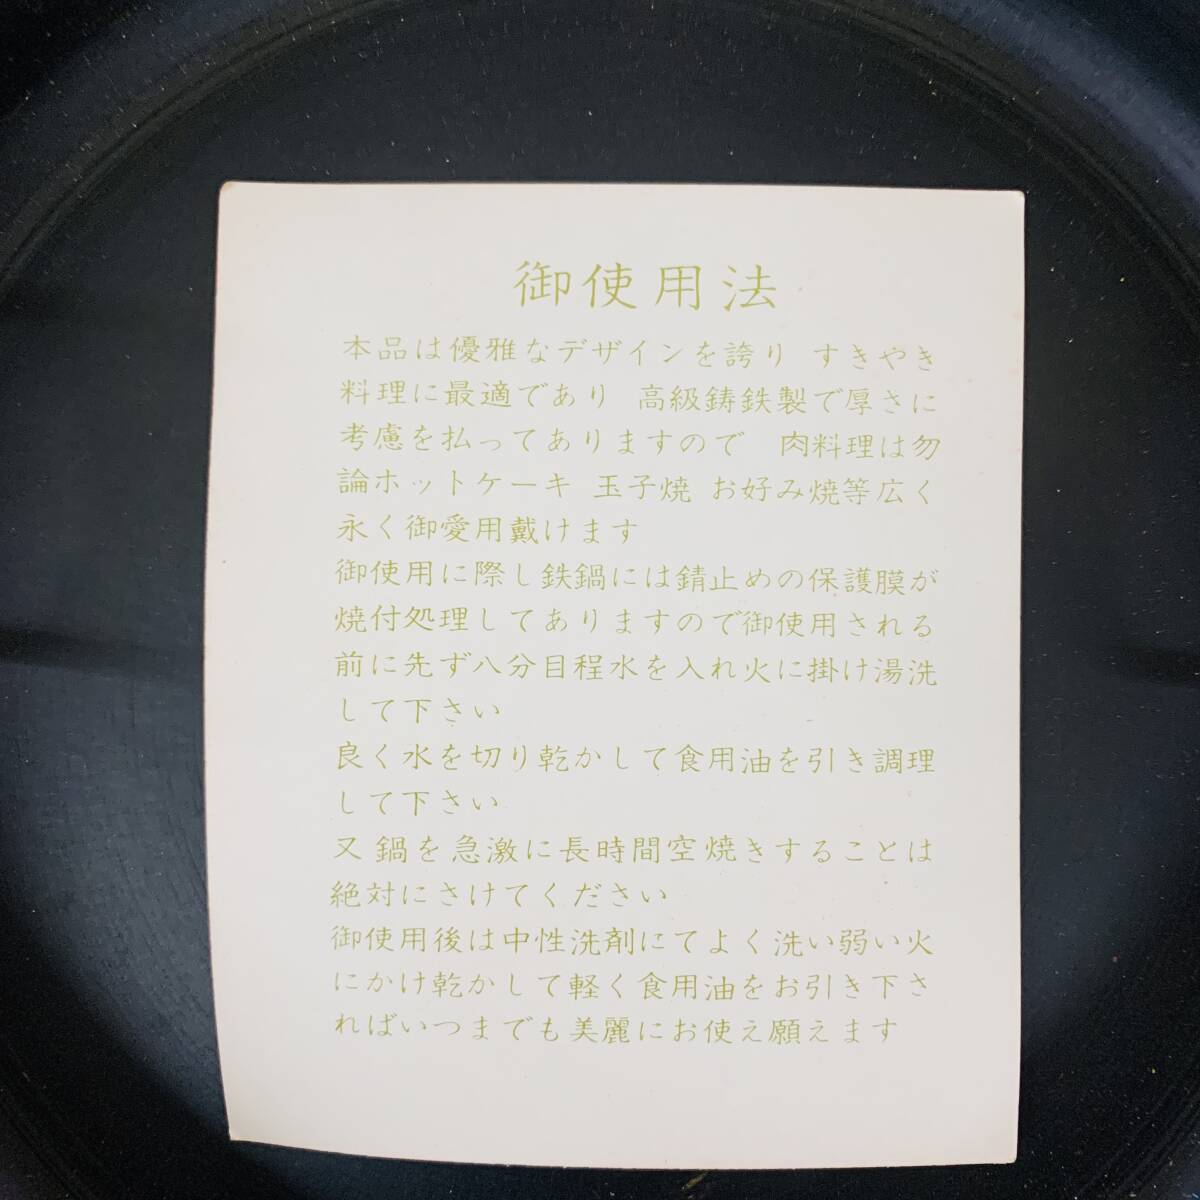 御使用法
本品は優雅なデザインを誇り すきやき
料理に最適であり 高級鋳鉄製で厚さに
考慮を払ってありますので 肉料理は勿
論ホットケーキ 玉子焼 お好み焼等広く
永く御愛用戴けます
御使用に際し鉄鍋には錆止めの保護膜が
焼付処理してありますので御使用される
前に先ず八分目程水を入れ火に掛け湯洗
して下さい
良く水を切り乾かして食用油を引き調理
して下さい
又鍋を急激に長時間空焼きすることは
絶対にさけてください
御使用後は中性洗剤にてよく洗い弱い火
にかけ乾かして軽く食用油をお引き下さ
ればいつまでも美麗にお使え願えます